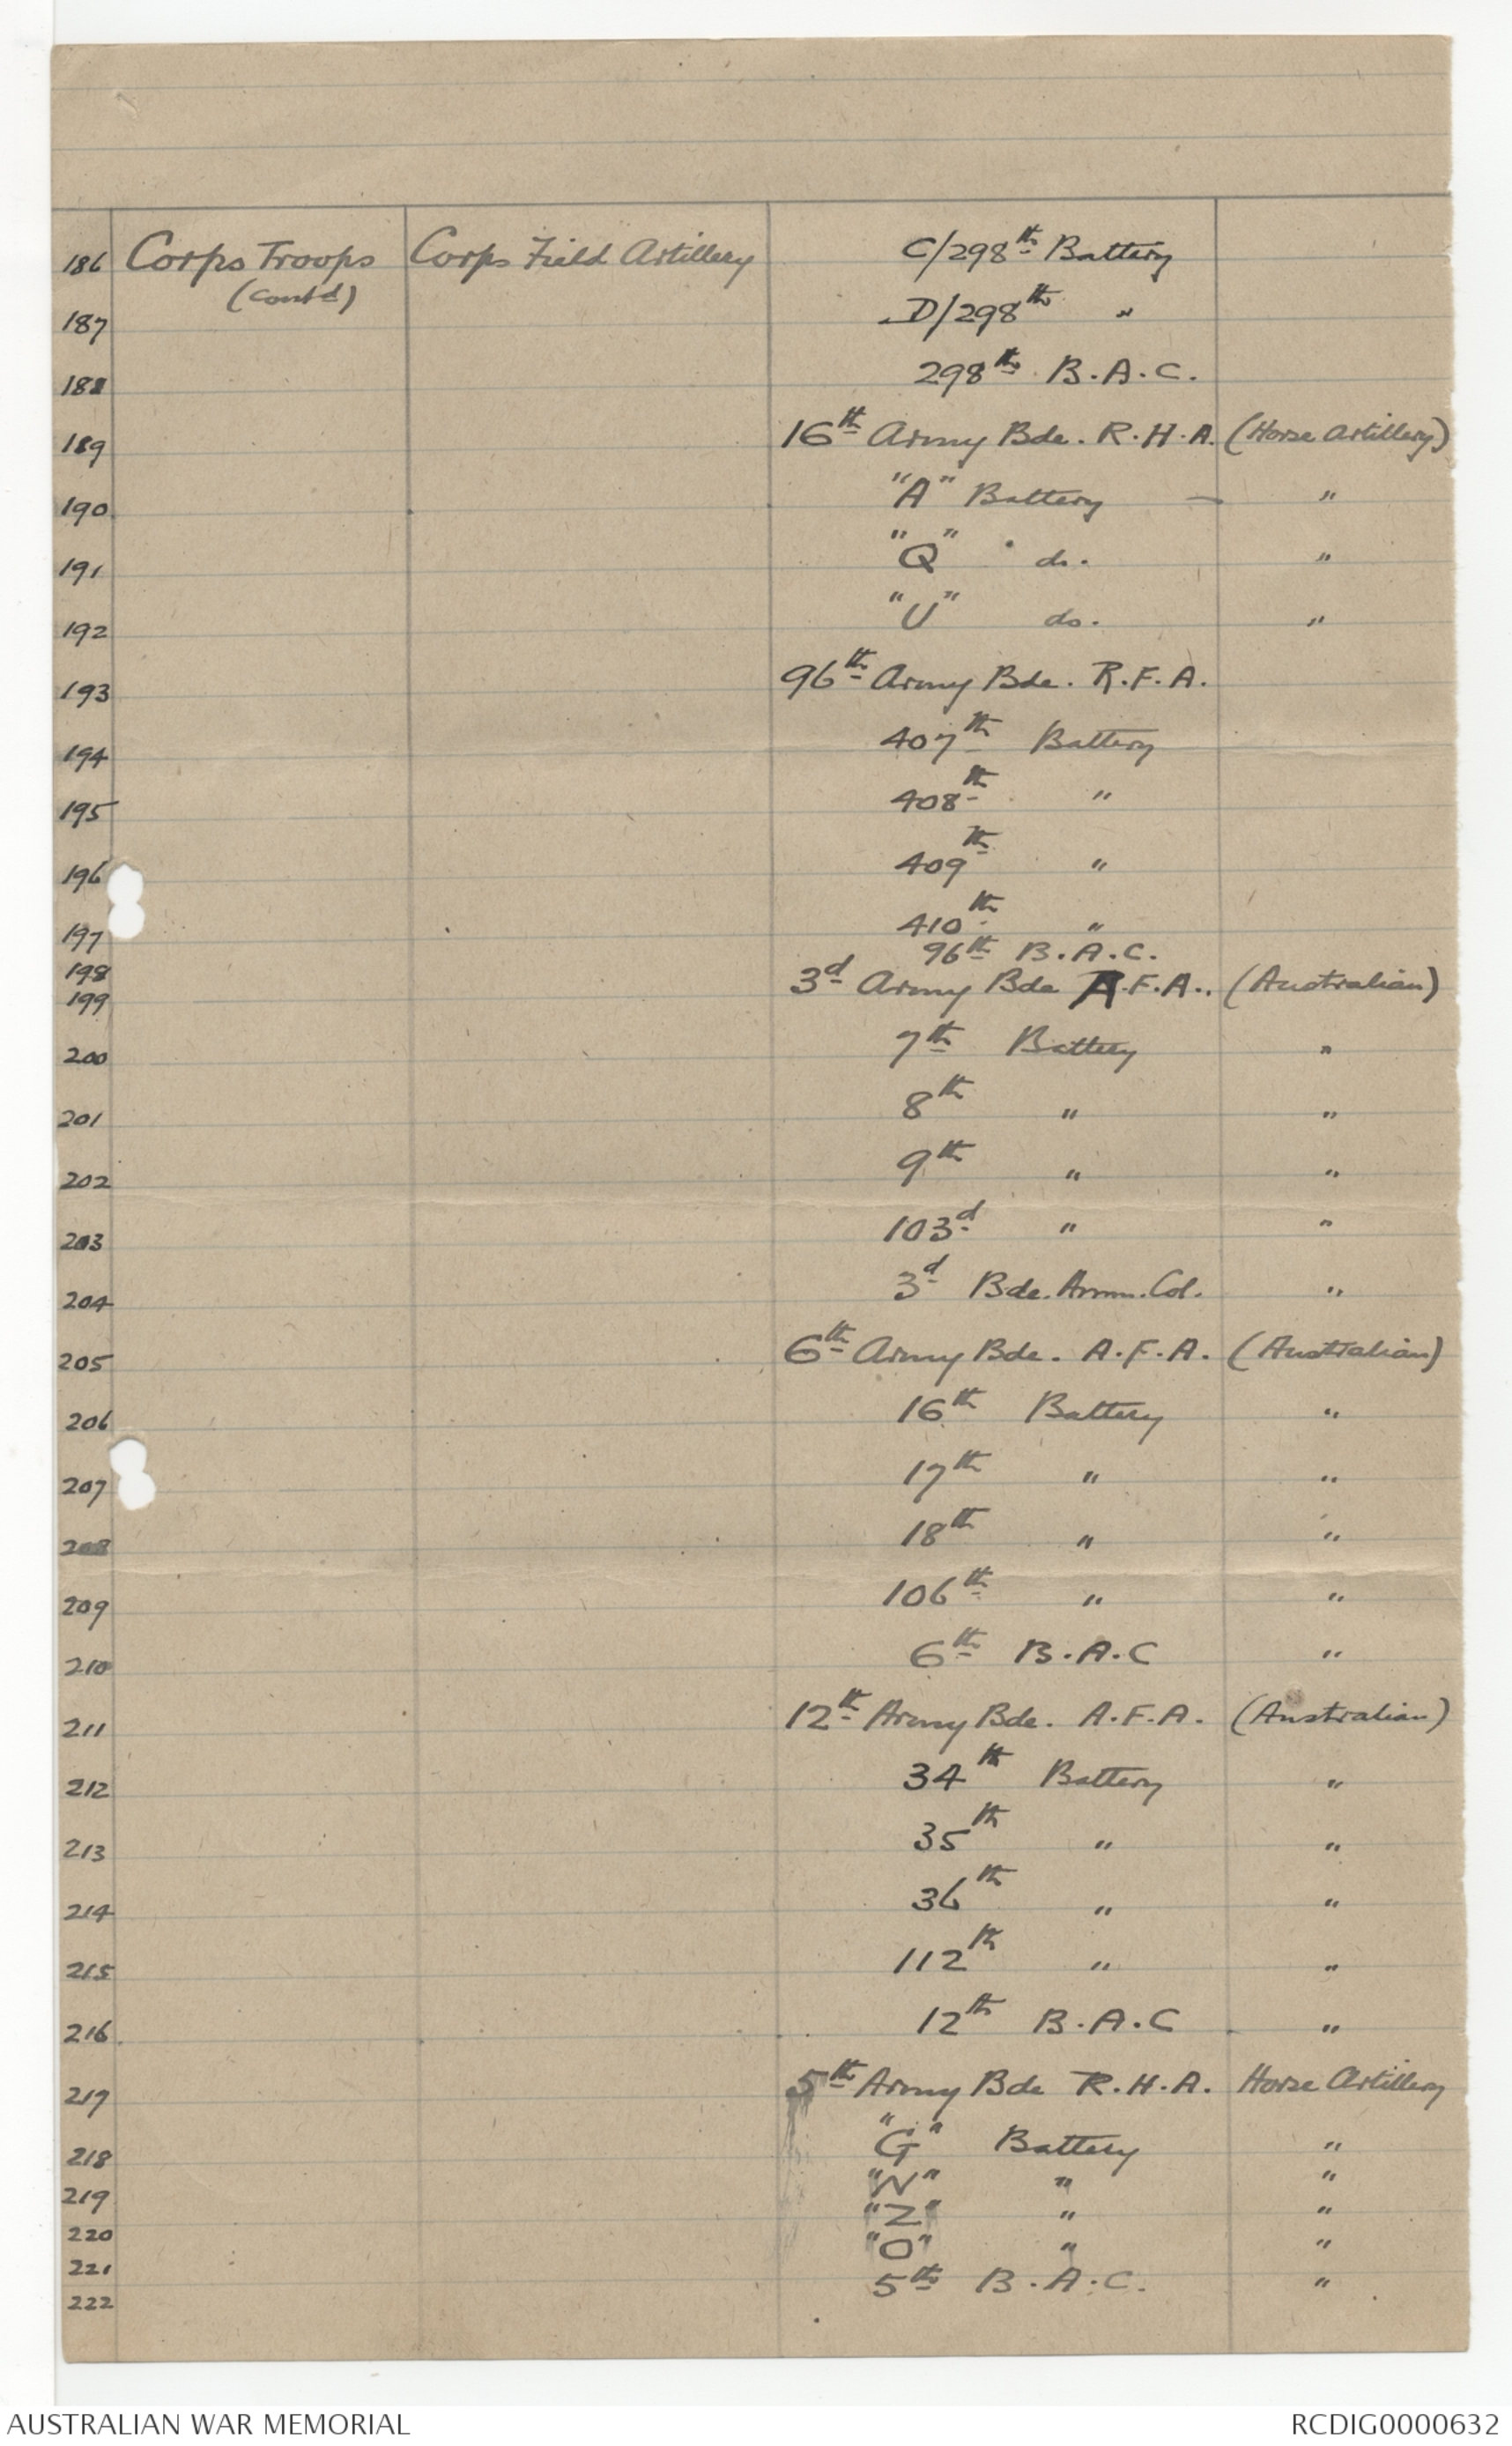 186 Corps Troops Corps Field Artillery C/298th Battery
(Contd)
187 D/298th "
188 298th B.A.C.
189 16th Army Bde. R.H.A. (Horse Artillery)
190 "A" Battery — "
191 "Q" do. "
192 "U" do. "
193 96th Army Bde. R.F.A.
194 407th Battery
195 408th "
196 409th "
197 410th "
198 96th B.A.C.
199 3d Army Bde A.F.A. (Australian)
200 7th Battery "
201 8th " "
202 9th " "
203 103d " "
204 3d Bde. Amm. Col. "
205 6th Army Bde. A.F.A. (Australian)
206 16th Battery "
207 17th " "
208 18th " "
209 106th " "
210 6th B.A.C "
211 12th Army Bde. A.F.A. (Australian)
212 34th Battery "
213 35th " "
214 36th " "
215 112th " "
216 12th B.A.C "
217 5th Army Bde R.H.A. Horse Artillery
218 "G" Battery "
219 "N" " "
220 "Z" " "
221 "O" " "
222 5th B.A.C. "
AUSTRALIAN WAR MEMORIAL RCDIG0000632